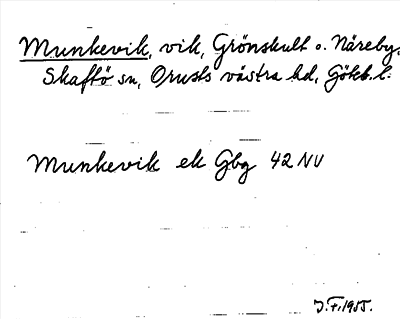 Munkevik, vik, Grönskult o. Näreby,
Skaftö sn, Orusts västra hd, Göteb. l.
Munkevik ek Gbg 42 NV
J.F. 1955.